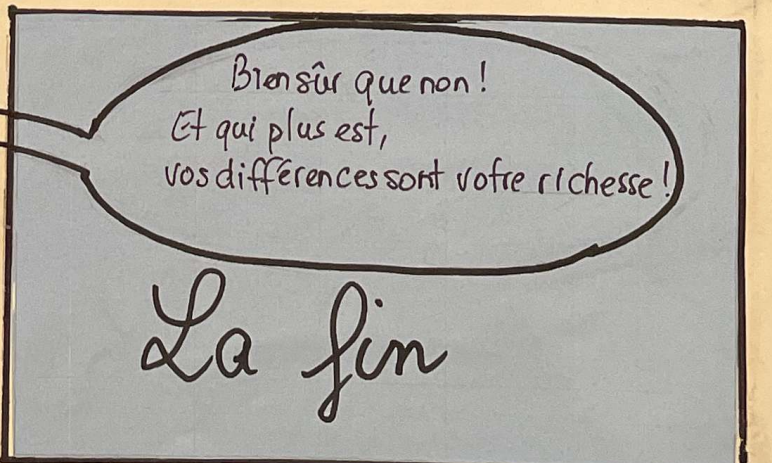 Bien sûr que non!
Et qui plus est,
vos différences sont votre richesse!
La fin